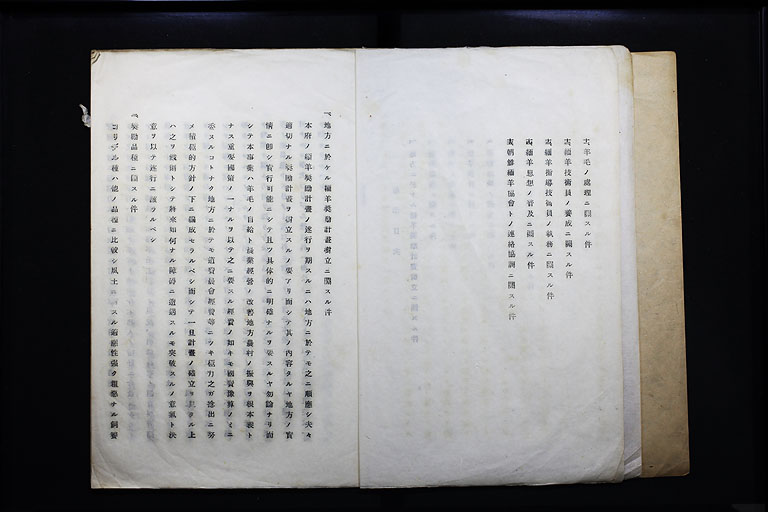 羊毛ノ處理ニ關スル件
緬羊技術員ノ養成ニ關スル件
緬羊指導技術員ノ執務ニ關スル件
緬羊思想ノ普及ニ關スル件
朝鮮緬羊協會トノ連絡協調ニ關スル件
一、地方ニ於ケル緬羊奬勵計畫樹立ニ關スル件
本府ノ緬羊奬勵計畫ノ遂行ヲ期スルニハ地方ニ於テモ之ニ順應シ夫々
適切ナル奬勵計畫ヲ樹立スルノ要アリ而シテ其ノ內容タルヤ地方ノ實
情ニ卽シ實行可能ニシテ且ツ具體的ニ明確ナルヲ要スルヤ勿論ナリ而
シテ本事業ハ羊毛ノ自給ト農業經營ノ改善地方農村ノ振興ヲ根本義ト
ナス重要國策ノ一ナルヲ以テ之ニ要スル經費ノ如キモ國費豫算ノミニ
委スルコトナク地方ニ於テモ道費農會經費等ニツキ極力之ガ捻出ニ努
メ積極的方針ノ下ニ編成セラルベシ而シテ一旦計畫ノ確立ヲ見タル上
ハ之ヲ根幹トシテ將來如何ナル障碍ニ遭遇スルモ突破スルノ意氣ト決
意ヲ以テ遂行ニ該ラルベシ
一、奬勵品種ニ關スル件
コリデール種ハ他ノ品種ニ比較シ風土ニ對スル適應性强ク粗惡ナル飼養